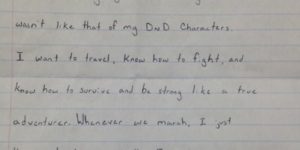 wasn't like that of my DND Characters.
I want to travel, know how to fight, and
know how to survive and be strong like a true
adventurer. Whenever we march, I just